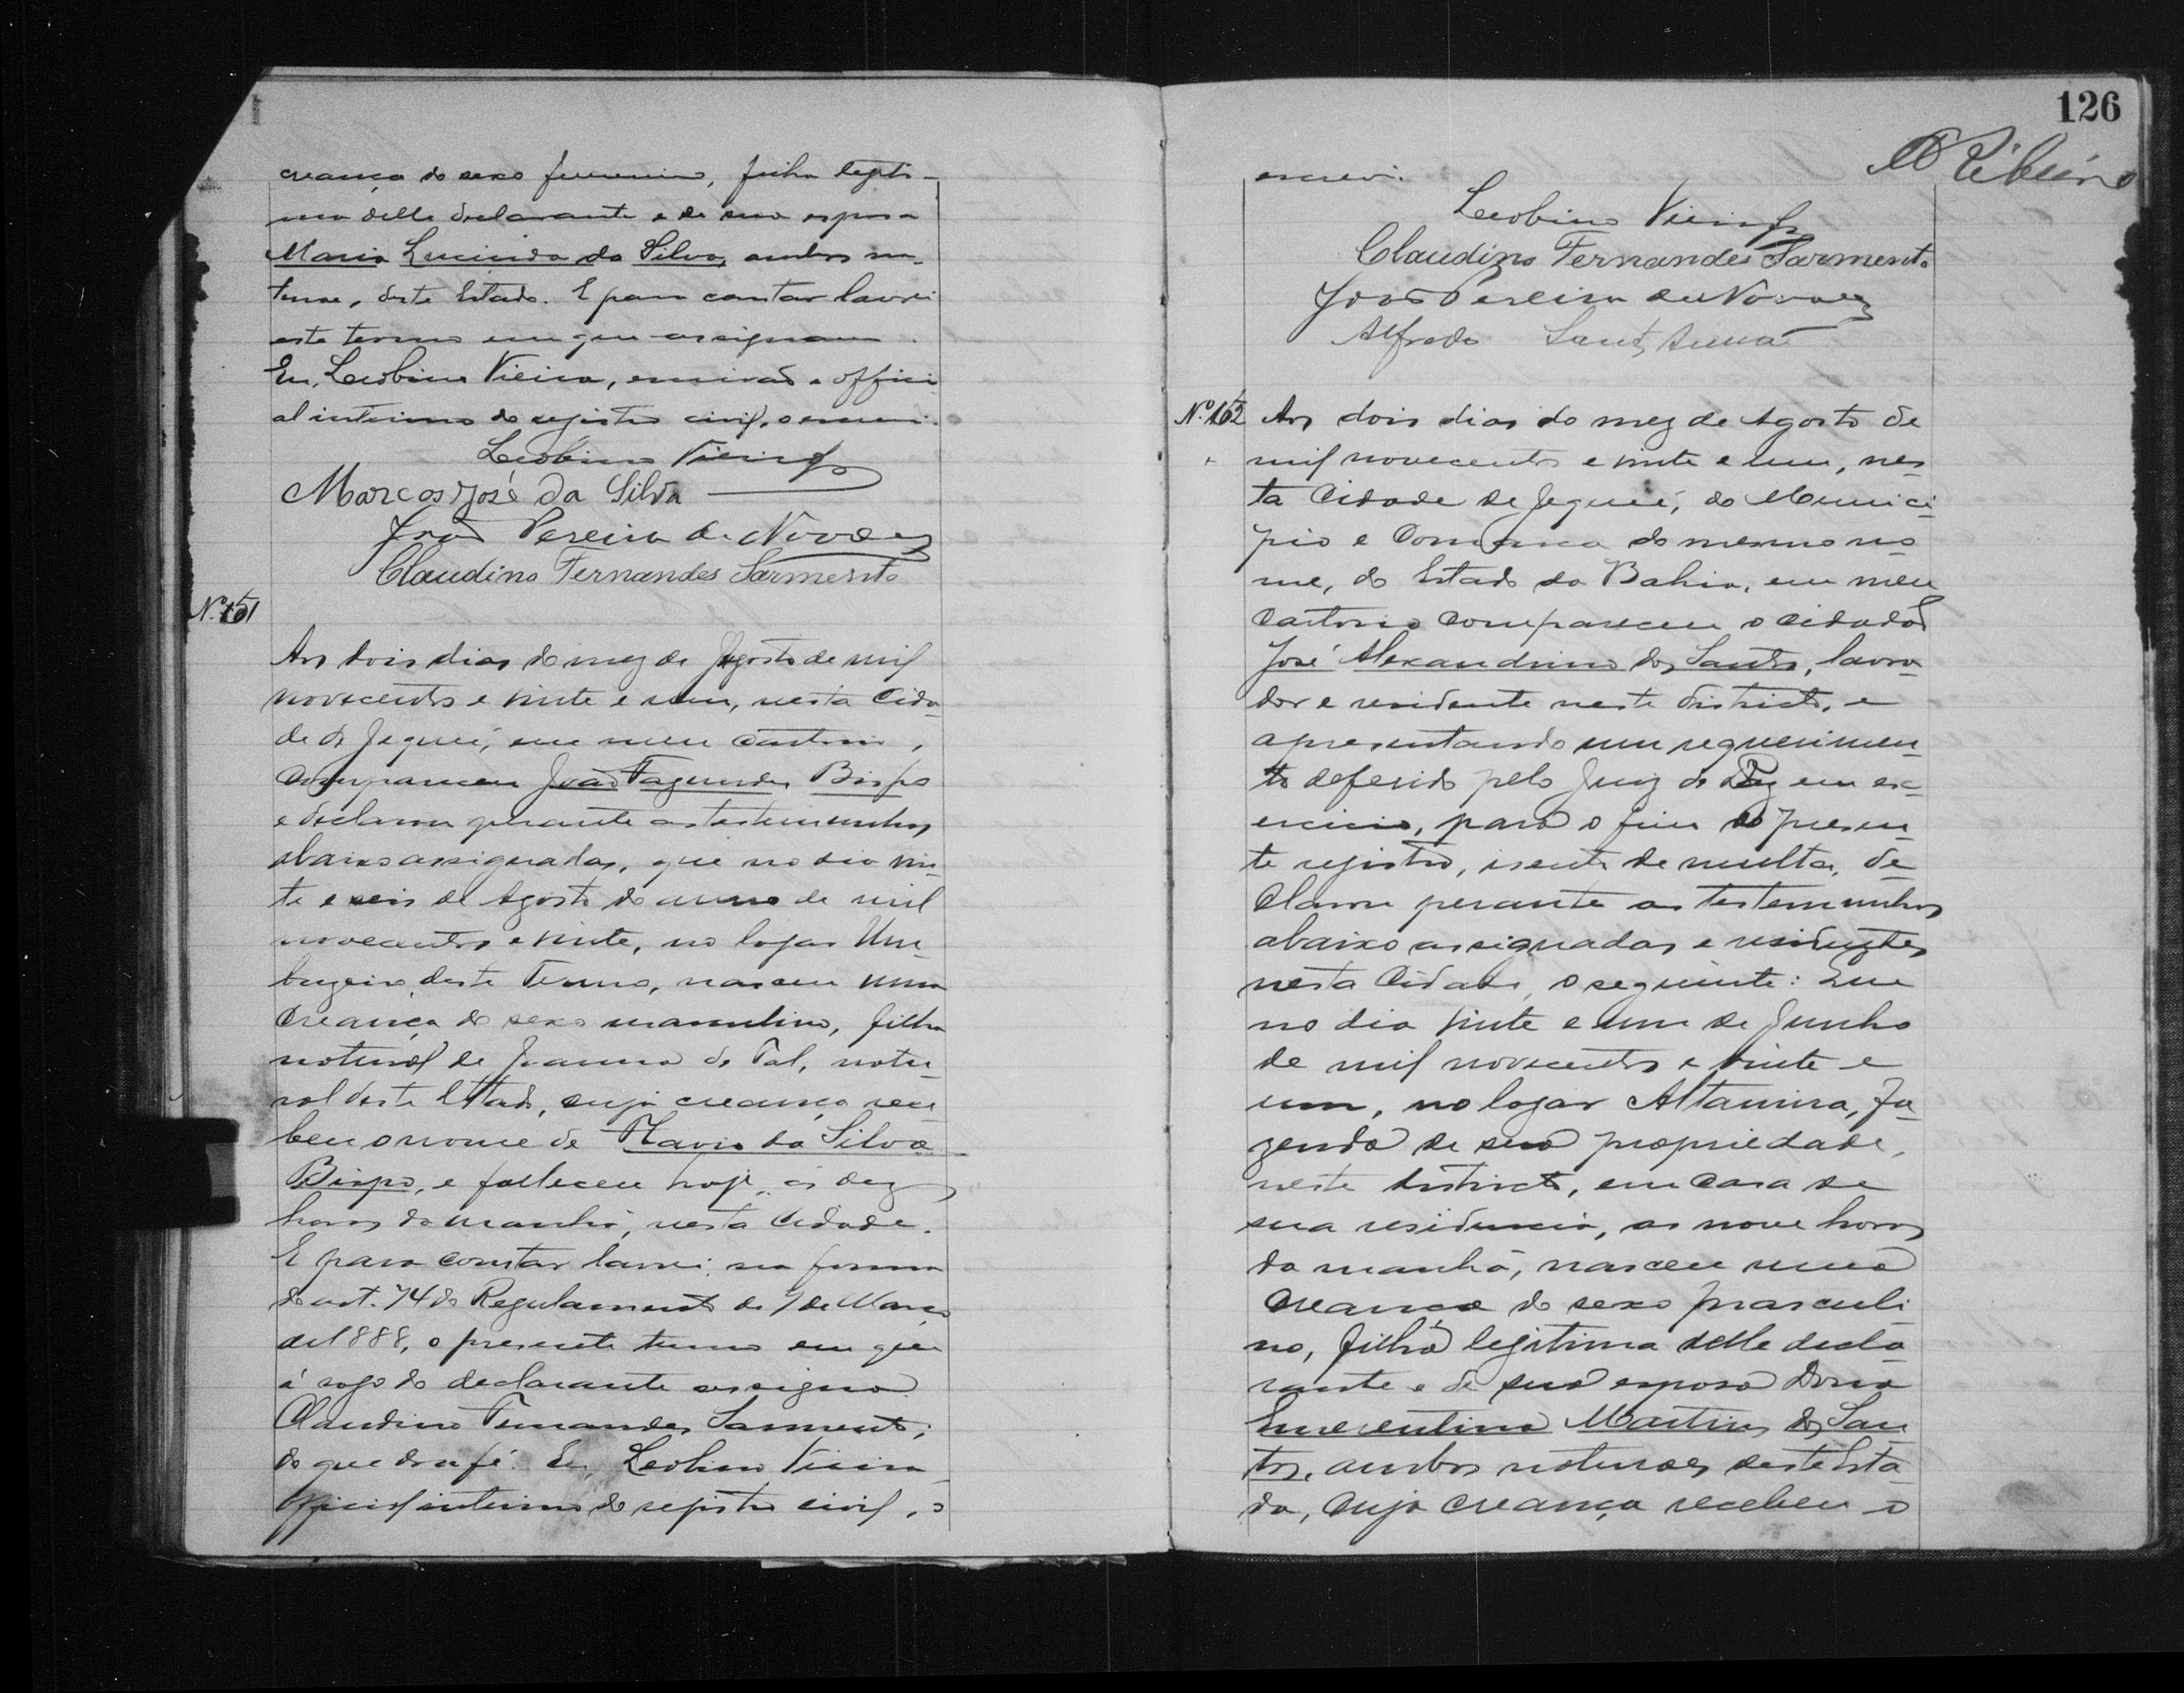 creança do sexo feminino, filha legiti-
ma delle declarante e de sua esposa
Maria Lucinda da Silva, ambos na-
deste Estado. E para constar lavrei
este termo em que assignam.
Eu, Leobino Vieira, escrivão e offici-
al interino do registro civil, o escrevi.
Leobino Vieira
Marcos José da Silva
João Pereira de Novaes
Claudino Fernandes Sarmento
Nº 161
Aos dois dias do mez de Agosto de mil
novecentos e vinte e um, nesta Cida-
de de Jequié, em meu Cartorio,
Compareceu João Fagundes Bispo
e declarou perante as testemunhas
abaixo assignadas, que no dia vin-
te e seis de Agosto do anno de mil
novecentos e vinte, no logar Um-
buzeiro, deste Termo, nasceu uma
Creança do sexo masculino, filha
natural de Joanna de Tal, natu-
ral deste Estado, cuja creança rece-
beu o nome de Flavio da Silva
Bispo, e falleceu hoje, ás dez
horas da manhã, nesta Cidade.
E para constar lavrei, na forma
do art. 74 do Regulamento de 7 de Março
de 1888, o presente termo em que
á rogo do declarante assigna
Claudino Fernandes Sarmento;
do que dou fé. Eu, Leobino Vieira
Official interino do registro civil, o
126
Ribeiro
escrevi.
Leobino Vieira
Claudino Fernandes Sarmento
João Pereira de Novaes
Alfredo Sant'Anna
Nº 162 Aos dois dias do mez de Agosto de
mil novecentos e vinte e um, nes-
ta Cidade de Jequié, do Munici-
pio e Comarca do mesmo no-
me, do Estado da Bahia, em meu
Cartorio Compareceu o Cidadão
José Alexandrino dos Santos, lavra-
dor e residente neste districto, e
apresentando um requerimen-
to deferido pelo Juiz de Paz em ex-
ercicio, para o fim do presen-
te registro, isento de multa, de-
clarou perante as testemunhas
abaixo assignadas e residentes
nesta Cidade, o seguinte: Que
no dia vinte e um de Junho
de mil novecentos e vinte e
um, no logar Altamira, fa-
zenda de sua propriedade,
neste districto, em casa de
sua residencia, as nove horas
da manhã, nasceu uma
Creança do sexo masculi-
no, filha legitima delle decla-
rante e de sua esposa Dona
Emerentina Martins dos San-
tos, ambos naturaes deste Esta-
do, Cuja creança recebeu o